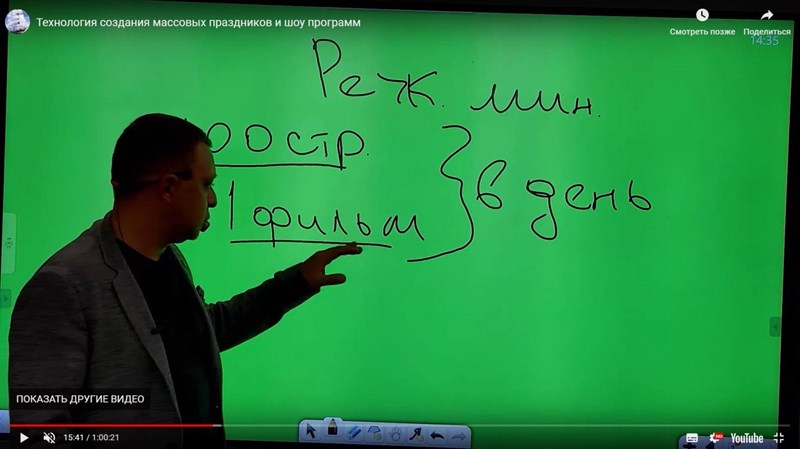 Технология создания массовых праздников и шоу программ
Смотреть позже
Поделиться
14:35
Реж. мин.
00 стр.
1 фильм
в день
ПОКАЗАТЬ ДРУГИЕ ВИДЕО
15:41 / 1:00:21
YouTube